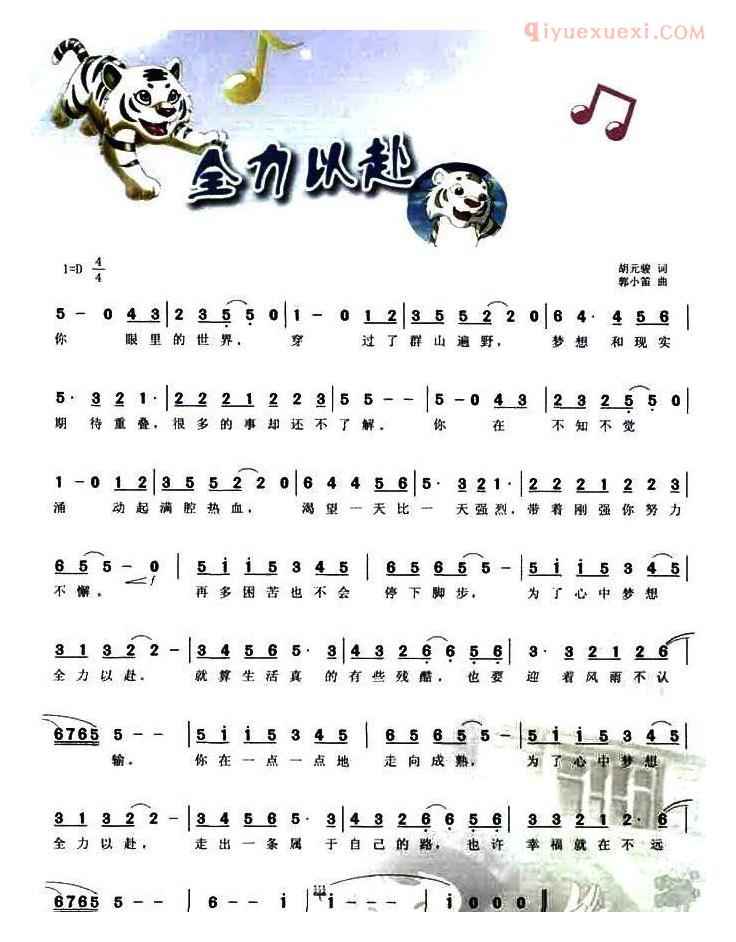 qiyuexuexi.COM
全力以赴
1=D 4/4
胡元骏 词
郭小笛 曲
5 - 0 4 3 | 2 3 5 5 0 | 1 - 0 1 2 | 3 5 5 2 2 0 | 6 4· 4 5 6 |
你 眼里的世界， 穿 过了群山遍野， 梦想 和现实
5· 3 2 1· | 2 2 2 1 2 2 3 | 5 5 - - | 5 - 0 4 3 | 2 3 2 5 5 0 |
期 待重叠，很多的事却还不了解。 你 在 不知不觉
1 - 0 1 2 | 3 5 5 2 2 0 | 6 4 4 5 6 | 5· 3 2 1· | 2 2 2 1 2 2 3 |
涌 动起满腔热血， 渴望一天比一 天强烈，带着刚强你努力
6 5 5 - 0 | 5 i i 5 3 4 5 | 6 5 6 5 5 - | 5 i i 5 3 4 5 |
不懈。 f 再多困苦也不会 停下脚步， 为了心中梦想
3 1 3 2 2 - | 3 4 5 6 5 3· | 3 4 3 2 6 6 5 6 | 3· 3 2 1 2 6 |
全力以赴。 就算生活真 的有些残酷，也要 迎 着风雨不认
6765 5 - - | 5 i i 5 3 4 5 | 6 5 6 5 5 - | 5 i i 5 3 4 5 |
输。 你在一点一点地 走向成熟， 为了心中梦想
3 1 3 2 2 - | 3 4 5 6 5 3· | 3 4 3 2 6 6 5 6 | 3 3 2 1 2· 6 |
全力以赴， 走出一条属 于自己的路，也许 幸福就在不远
6765 5 - - | 5 - - - | 6 - i | i - - - | i 0 0 0 |